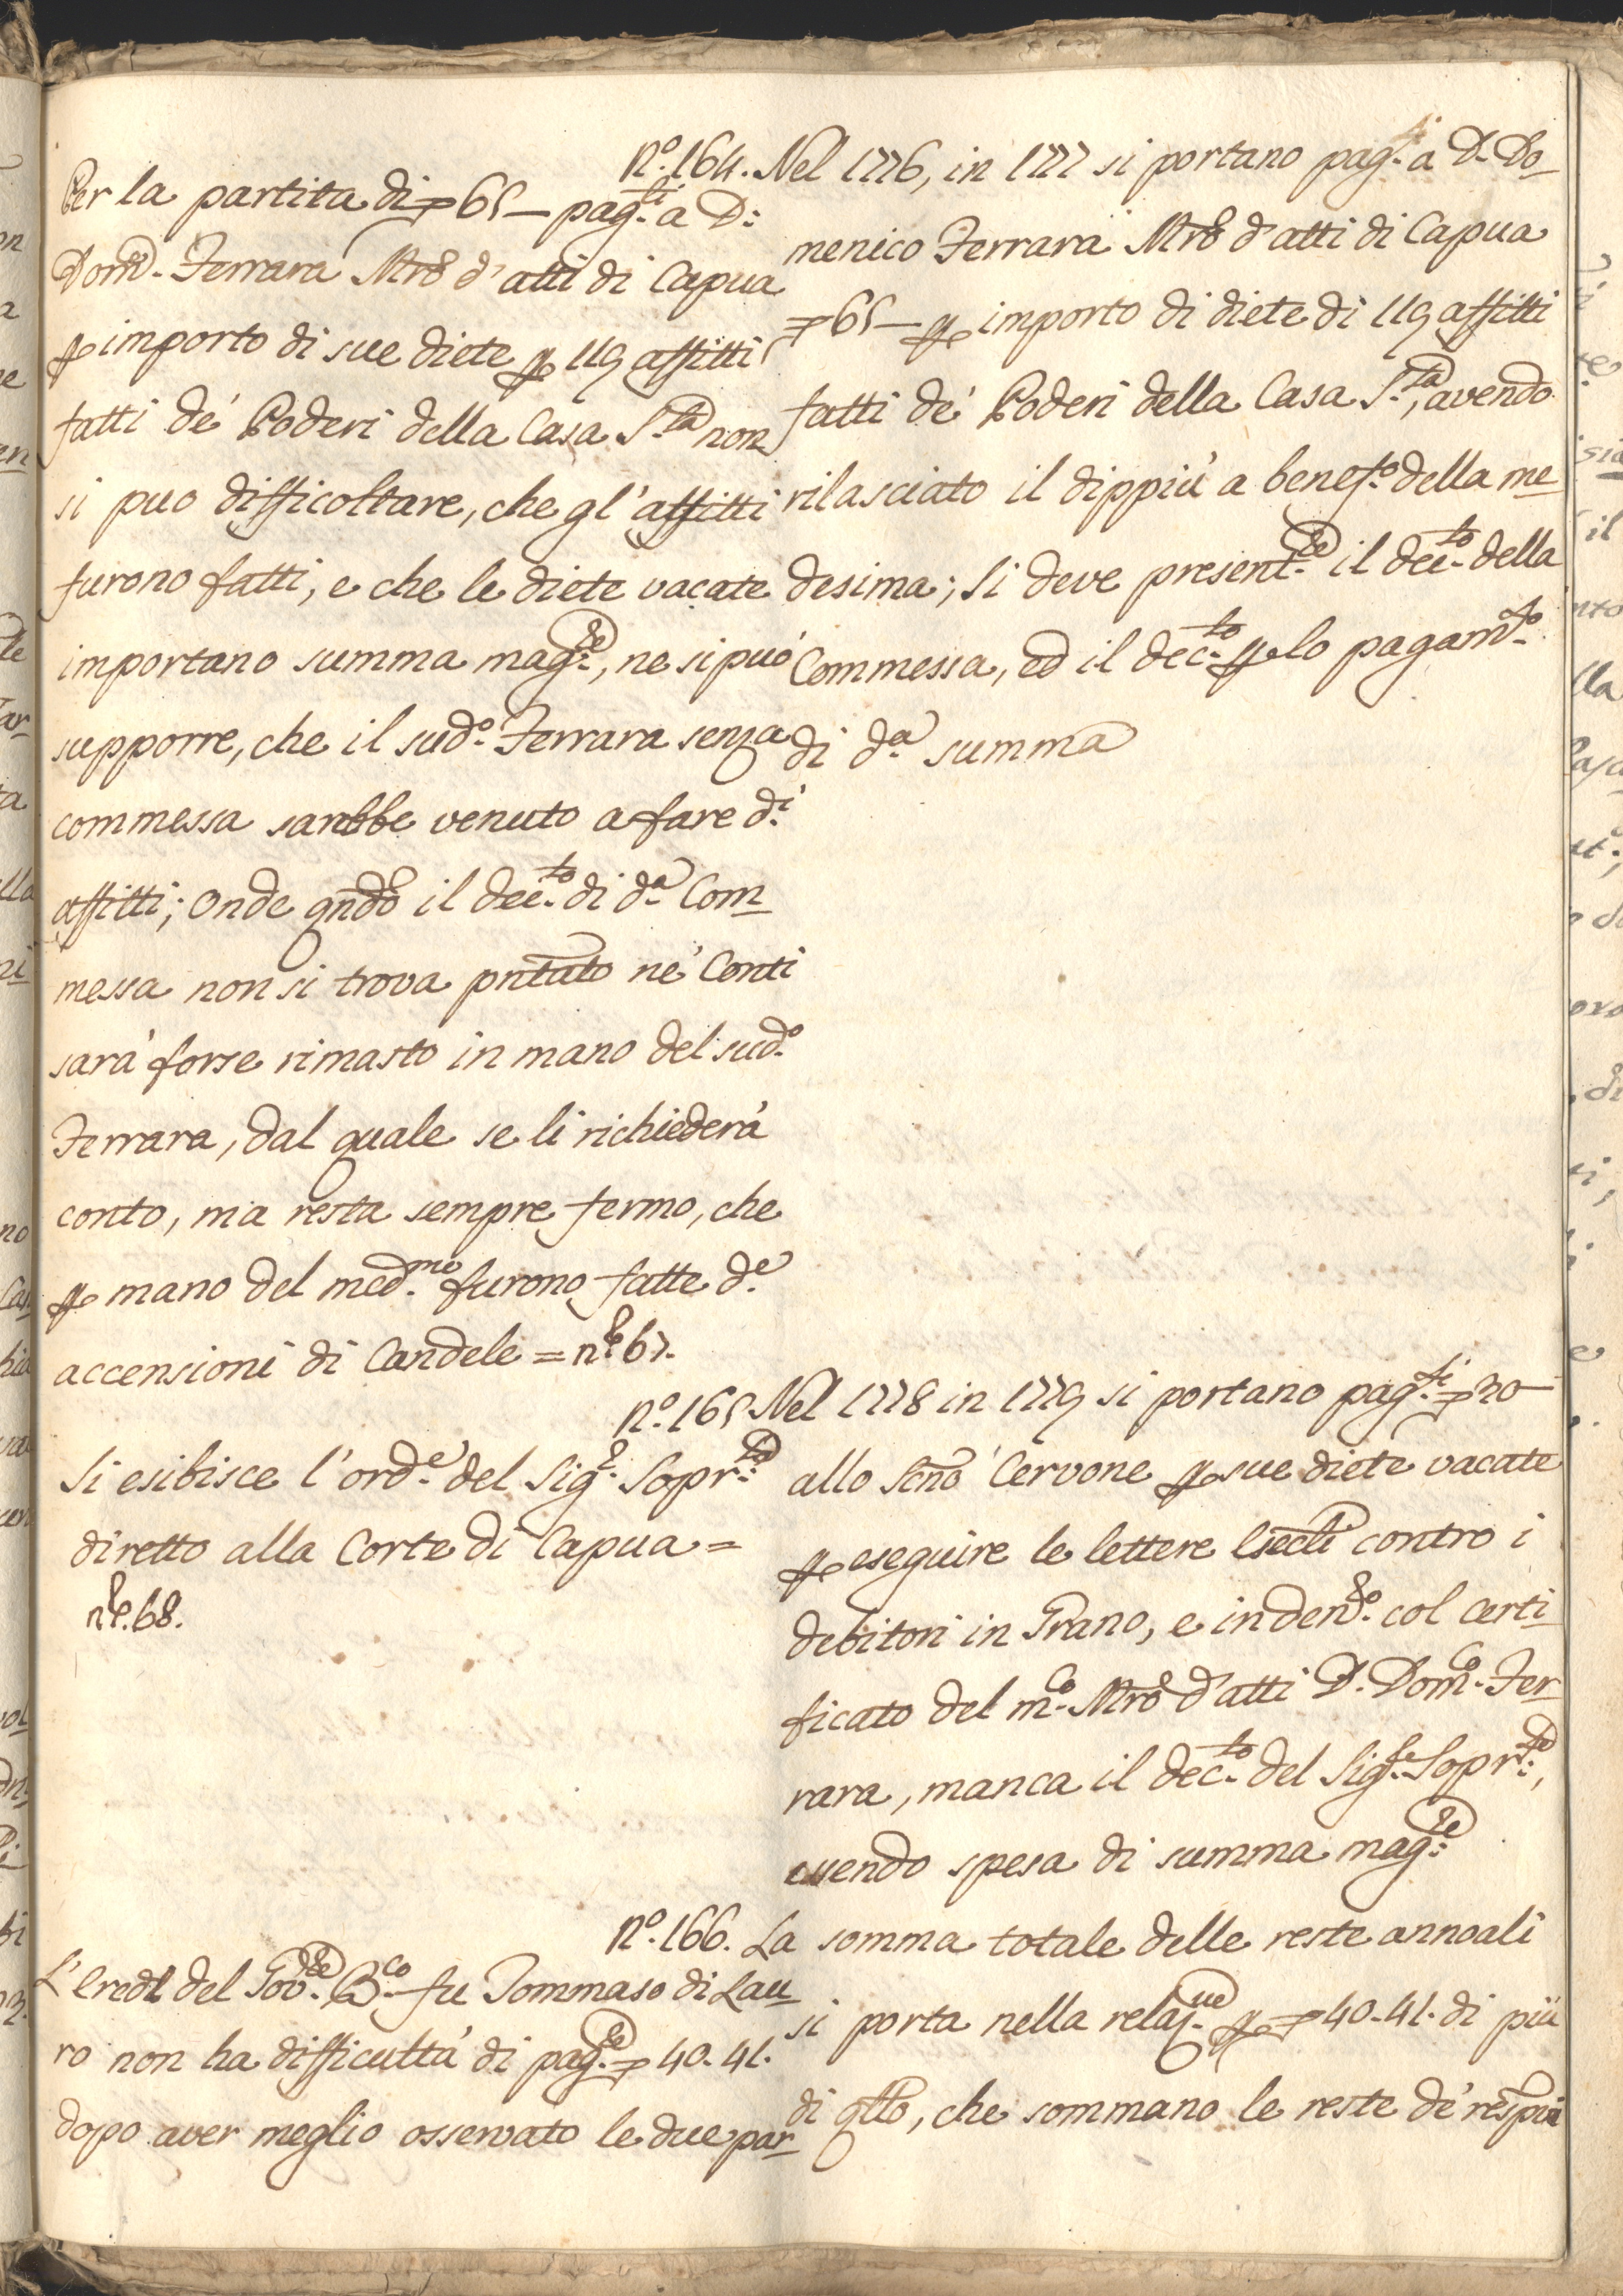 nº. 164. Nel 1776, in 1777 si portano pag.ti a D. Do-
menico Ferrara Mrõ d'atti di Capua
65 — per importo di diete di 119 affitti
fatti de' Poderi della Casa S.ta, avendo
rilasciato il dippiù a benef.o della me-
desima; Si deve present.re il dec.to della
Commessa, ed il dec.to per lo pagam.to
di d.a summa
Per la partita di 65 — pag.ti a D:
Dom.co Ferrara Mrõ d'atti di Capua
per importo di sue diete per 119 affitti
fatti de' Poderi della Casa S.ta non
si può difficoltare, che gl'affitti
furono fatti, e che le diete vacate
importano summa mag.re, ne si può
supporre, che il sud.o Ferrara senza
commessa sarebbe venuto a fare d.i
affitti; Onde qndõ il dec.to di d.a Com-
messa non si trova pntato ne' Conti
sarà forse rimasto in mano del sud.o
Ferrara, dal quale se li richiederà
conto, ma resta sempre fermo, che
per mano del med.mo furono fatte d.e
accensioni di Candele = n.º 67.
nº. 165 Nel 1778 in 1779 si portano pag.ti 20 —
allo Scñõ Cervone per sue diete vacate
per eseguire le lettere contro i
debitori in Grano, e in den.ro col Certi-
ficato del m.co Mrõ d'atti D. Dom.co Fer-
rara, manca il dec.to del Sig.re Sopr.te,
essendo spesa di summa mag.re
Si esibisce l'ord.e del Sig.r Sopr.te
diretto alla Corte di Capua =
n.º 68.
nº. 166. La somma totale delle reste annoali
si porta nella relaz.ne per 40-41. di più
di qllõ, che sommano le reste de'
L'Eredi del Gov.re fu Tommaso di Lau-
ro non ha difficultà di pag.re 40-41.
dopo aver meglio osservato le due par-